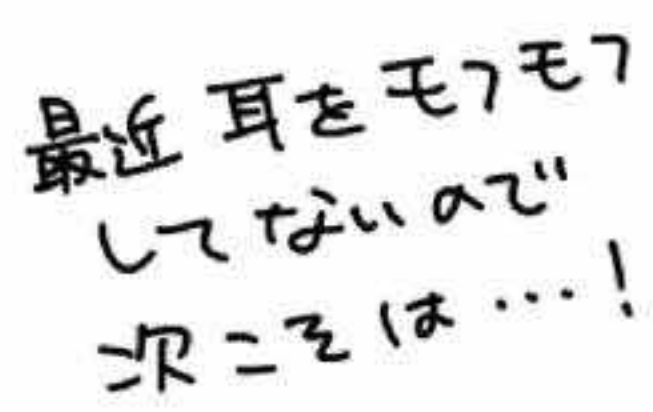 最近 耳をモフモフ
してないので
次こそは…!